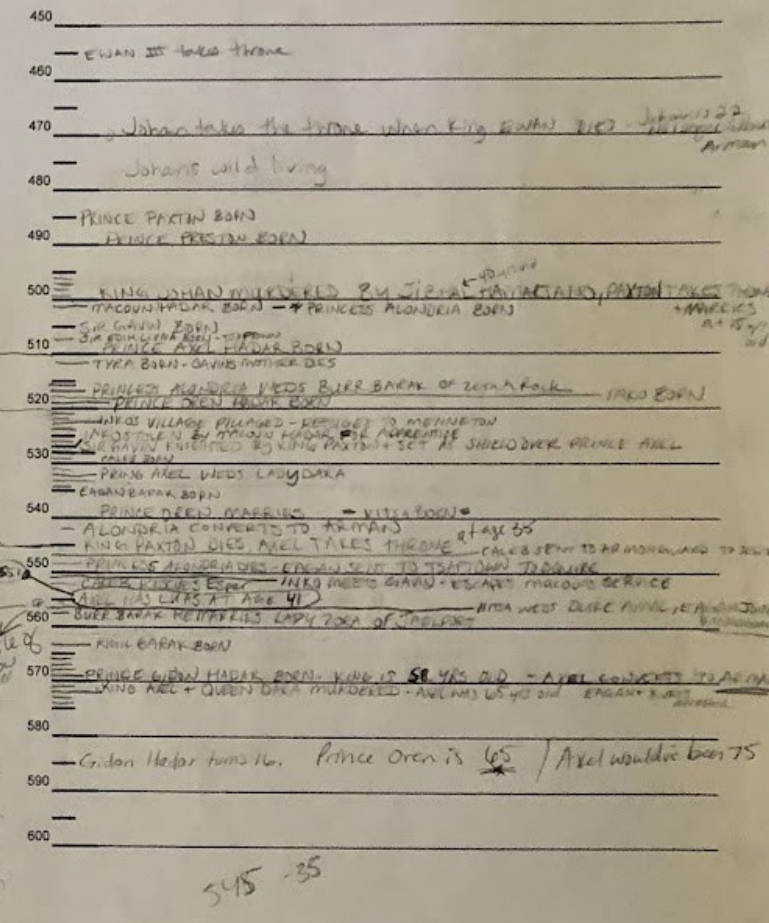 450
EWAN III takes throne
460
470 Johan takes the throne when King EWAN DIES - Johan is 22
Arman
Johans wild living
480
PRINCE PAXTON BORN
490
PRINCE PRESTON BORN
40 yrs old
500 KING JOHAN MURDERED BY JIBHAL HAMARTANO, PAXTON TAKES THRONE
MACOUN HADAR BORN - PRINCESS ALONDRIA BORN + MARRIES
SIR GAVIN BORN at 15 yrs old
510 PRINCE AXEL HADAR BORN
TYRA BORN - GAVINS MOTHER DIES
PRINCESS ALONDRIA WEDS BURR BARAK OF Rock INKO BORN
520 PRINCE OREN HADAR BORN
INKOS VILLAGE PILLAGED - REFUGEE TO MENNETON
BY MACOUN HADAR FOR APPRENTICE
SIR GAVIN KNIGHTED BY KING PAXTON + SET AS SHIELD OVER PRINCE AXEL
530 CALEB BORN
PRINC AXEL WEDS LADY DARA
EAGAN BARAK BORN
PRINCE OREN MARRIES BORN
540
ALONDRIA CONVERTS TO ARMAN
KING PAXTON DIES. AXEL TAKES THRONE at age 35
CALEB SENT TO
550 PRINCESS ALONDRIA DIES - EAGAN SENT TO
CALEB Esper - INKO MEETS GAVIN - ESCAPES MACOUNS SERVICE
AXEL HAS AT AGE 41
WEDS DUKE
560 BURR BARAK REMARRIES LADY ZORA OF JAELPORT
RIGIL BARAK BORN
570 PRINCE GIDON HADAR BORN. KING IS 58 YRS OLD - AXEL CONVERTS TO ARMAN
KING AXEL + QUEEN DARA MURDERED - AXEL WAS 65 yrs old EAGAN +
580
Gidon Hadar turns 16. Prince Oren is 65 / Axel would've been 75
590
600
545 -35